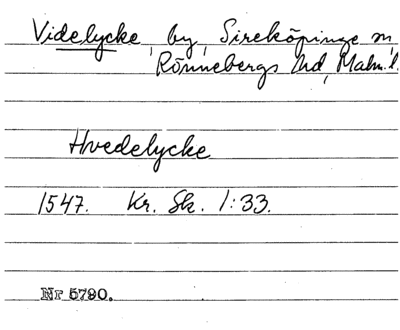 Videlycke, by, Sireköpinge sn
Rönnebergs hd, Malm. l.
Hvedelycke
1547. Kr. Sk. 1:33.
Nr 5790.